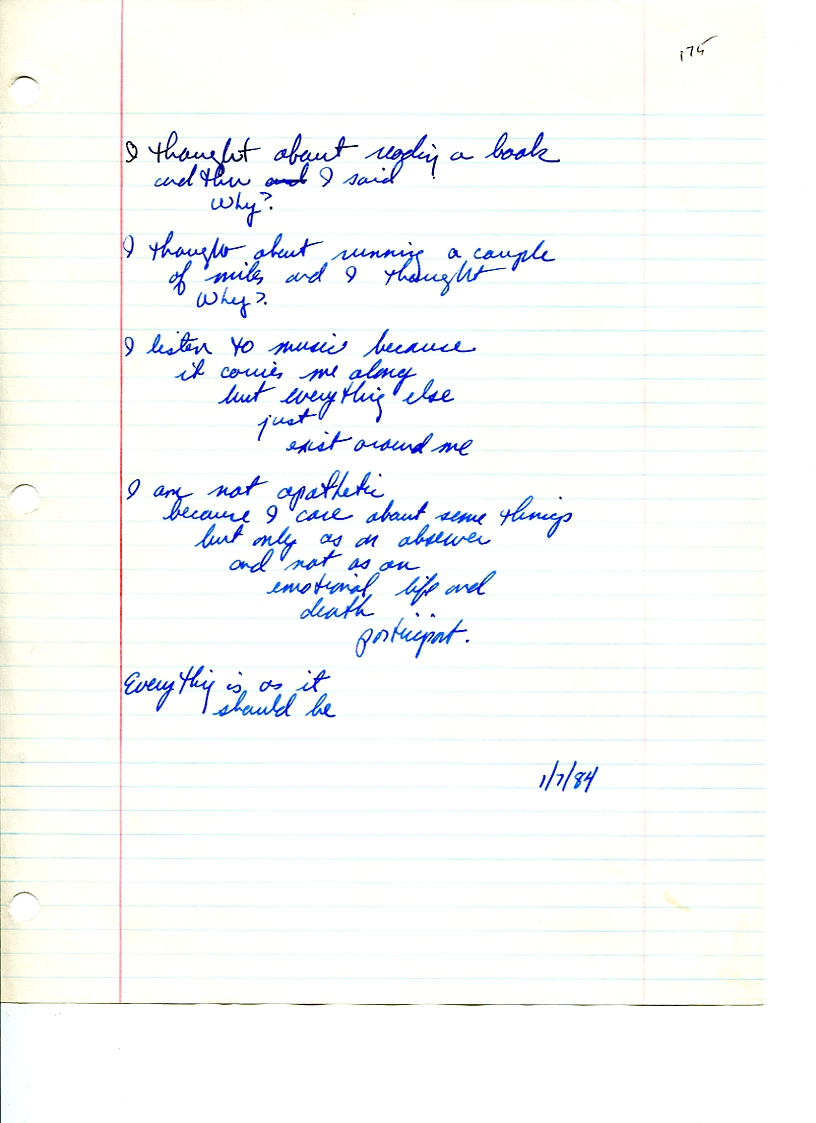 175
I thought about reading a book
and then and I said
Why?
I thought about running a couple
of miles and I thought
Why?
I listen to music because
it carries me along
but everything else
just
exist around me
I am not apathetic
because I care about some things
but only as an observer
and not as an
emotional, life and
death
participant.
Everything is as it
should be
1/7/84